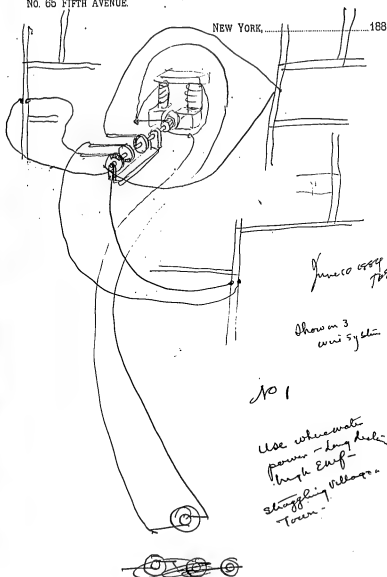 No. 65 FIFTH AVENUE.
NEW YORK, 188
June 10 1884
Shown on 3
wire system
No 1
Use where water
power - long distance
high Emf -
straggling village or
Town -